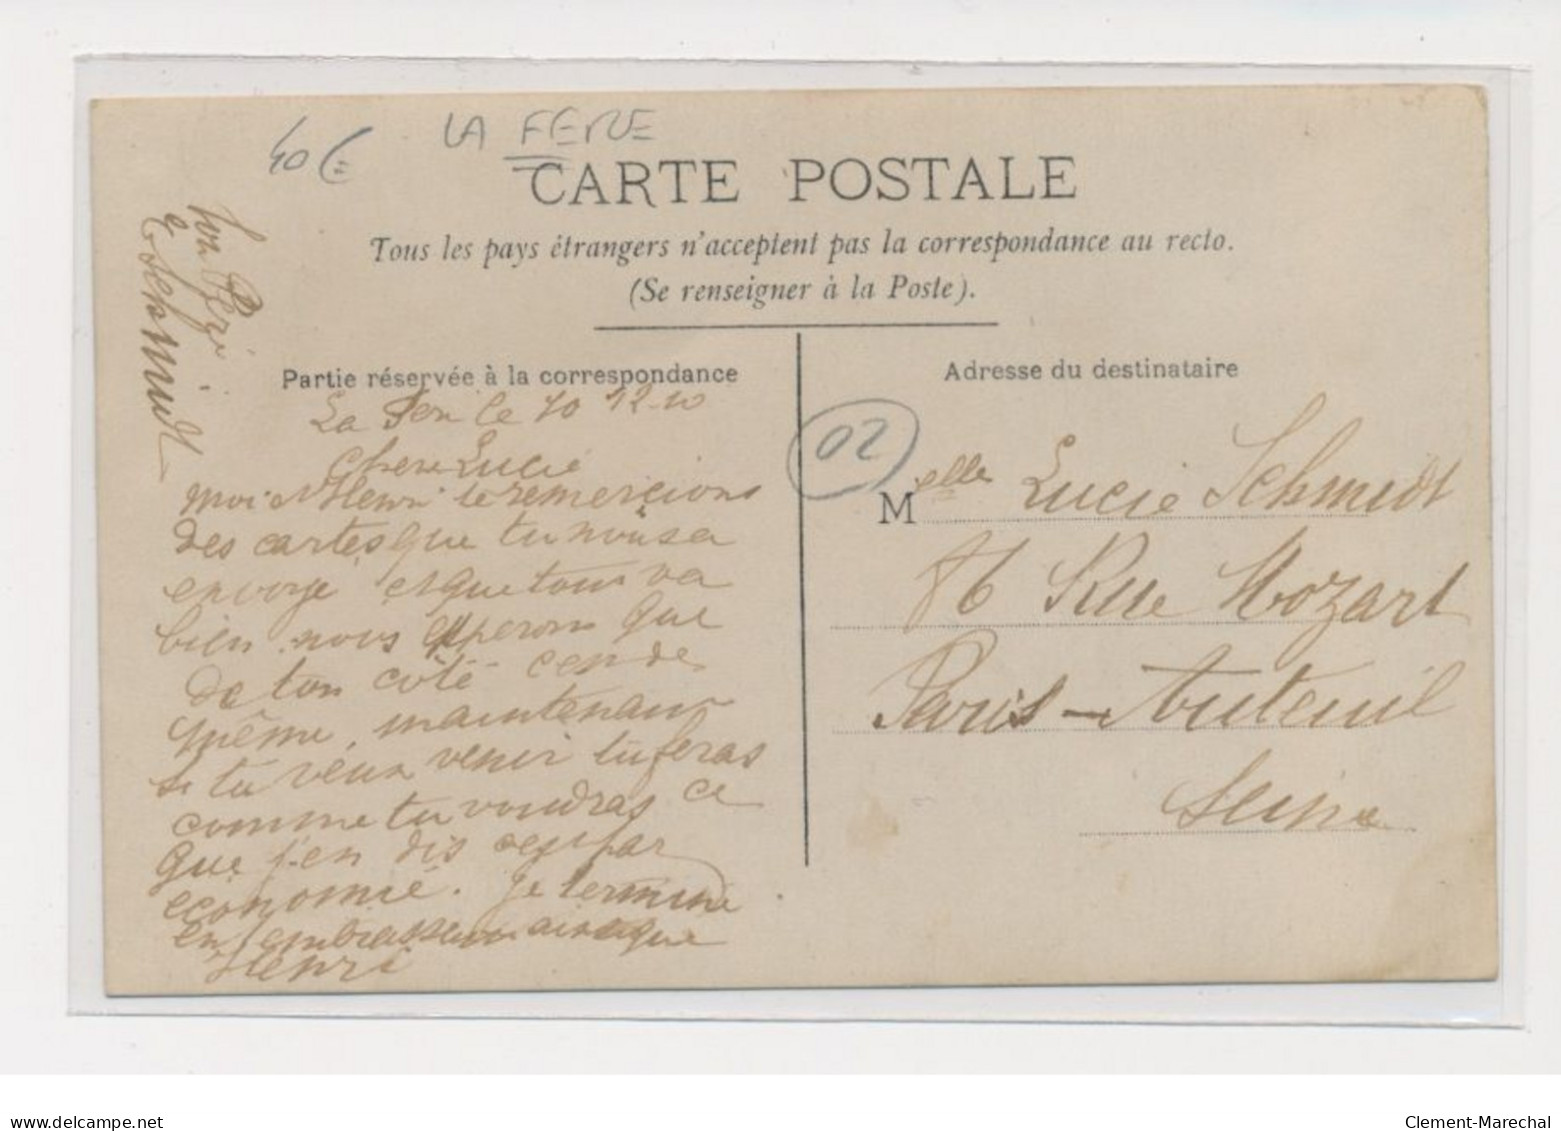 40 €
LA FERE
CARTE POSTALE
Tous les pays étrangers n'acceptent pas la correspondance au recto.
(Se renseigner à la Poste).
Partie réservée à la correspondance
La Fere le 10 12-10
Chere Lucie
moi et Henri te remercions
des cartes que tu nous a
envoye et que tout va
bien nous esperons que
de ton côté cen de
même, maintenant
si tu veux venir tu feras
comme tu voudras ce
que j'en dis par
economie. Je termine
en t'embrassant ainsi que
Henri
ton Pere
E Schmidt
Adresse du destinataire
02
Melle Lucie Schmidt
86 Rue Mozart
Paris - Auteuil
Seine
delcampe.net
Clement-Marechal